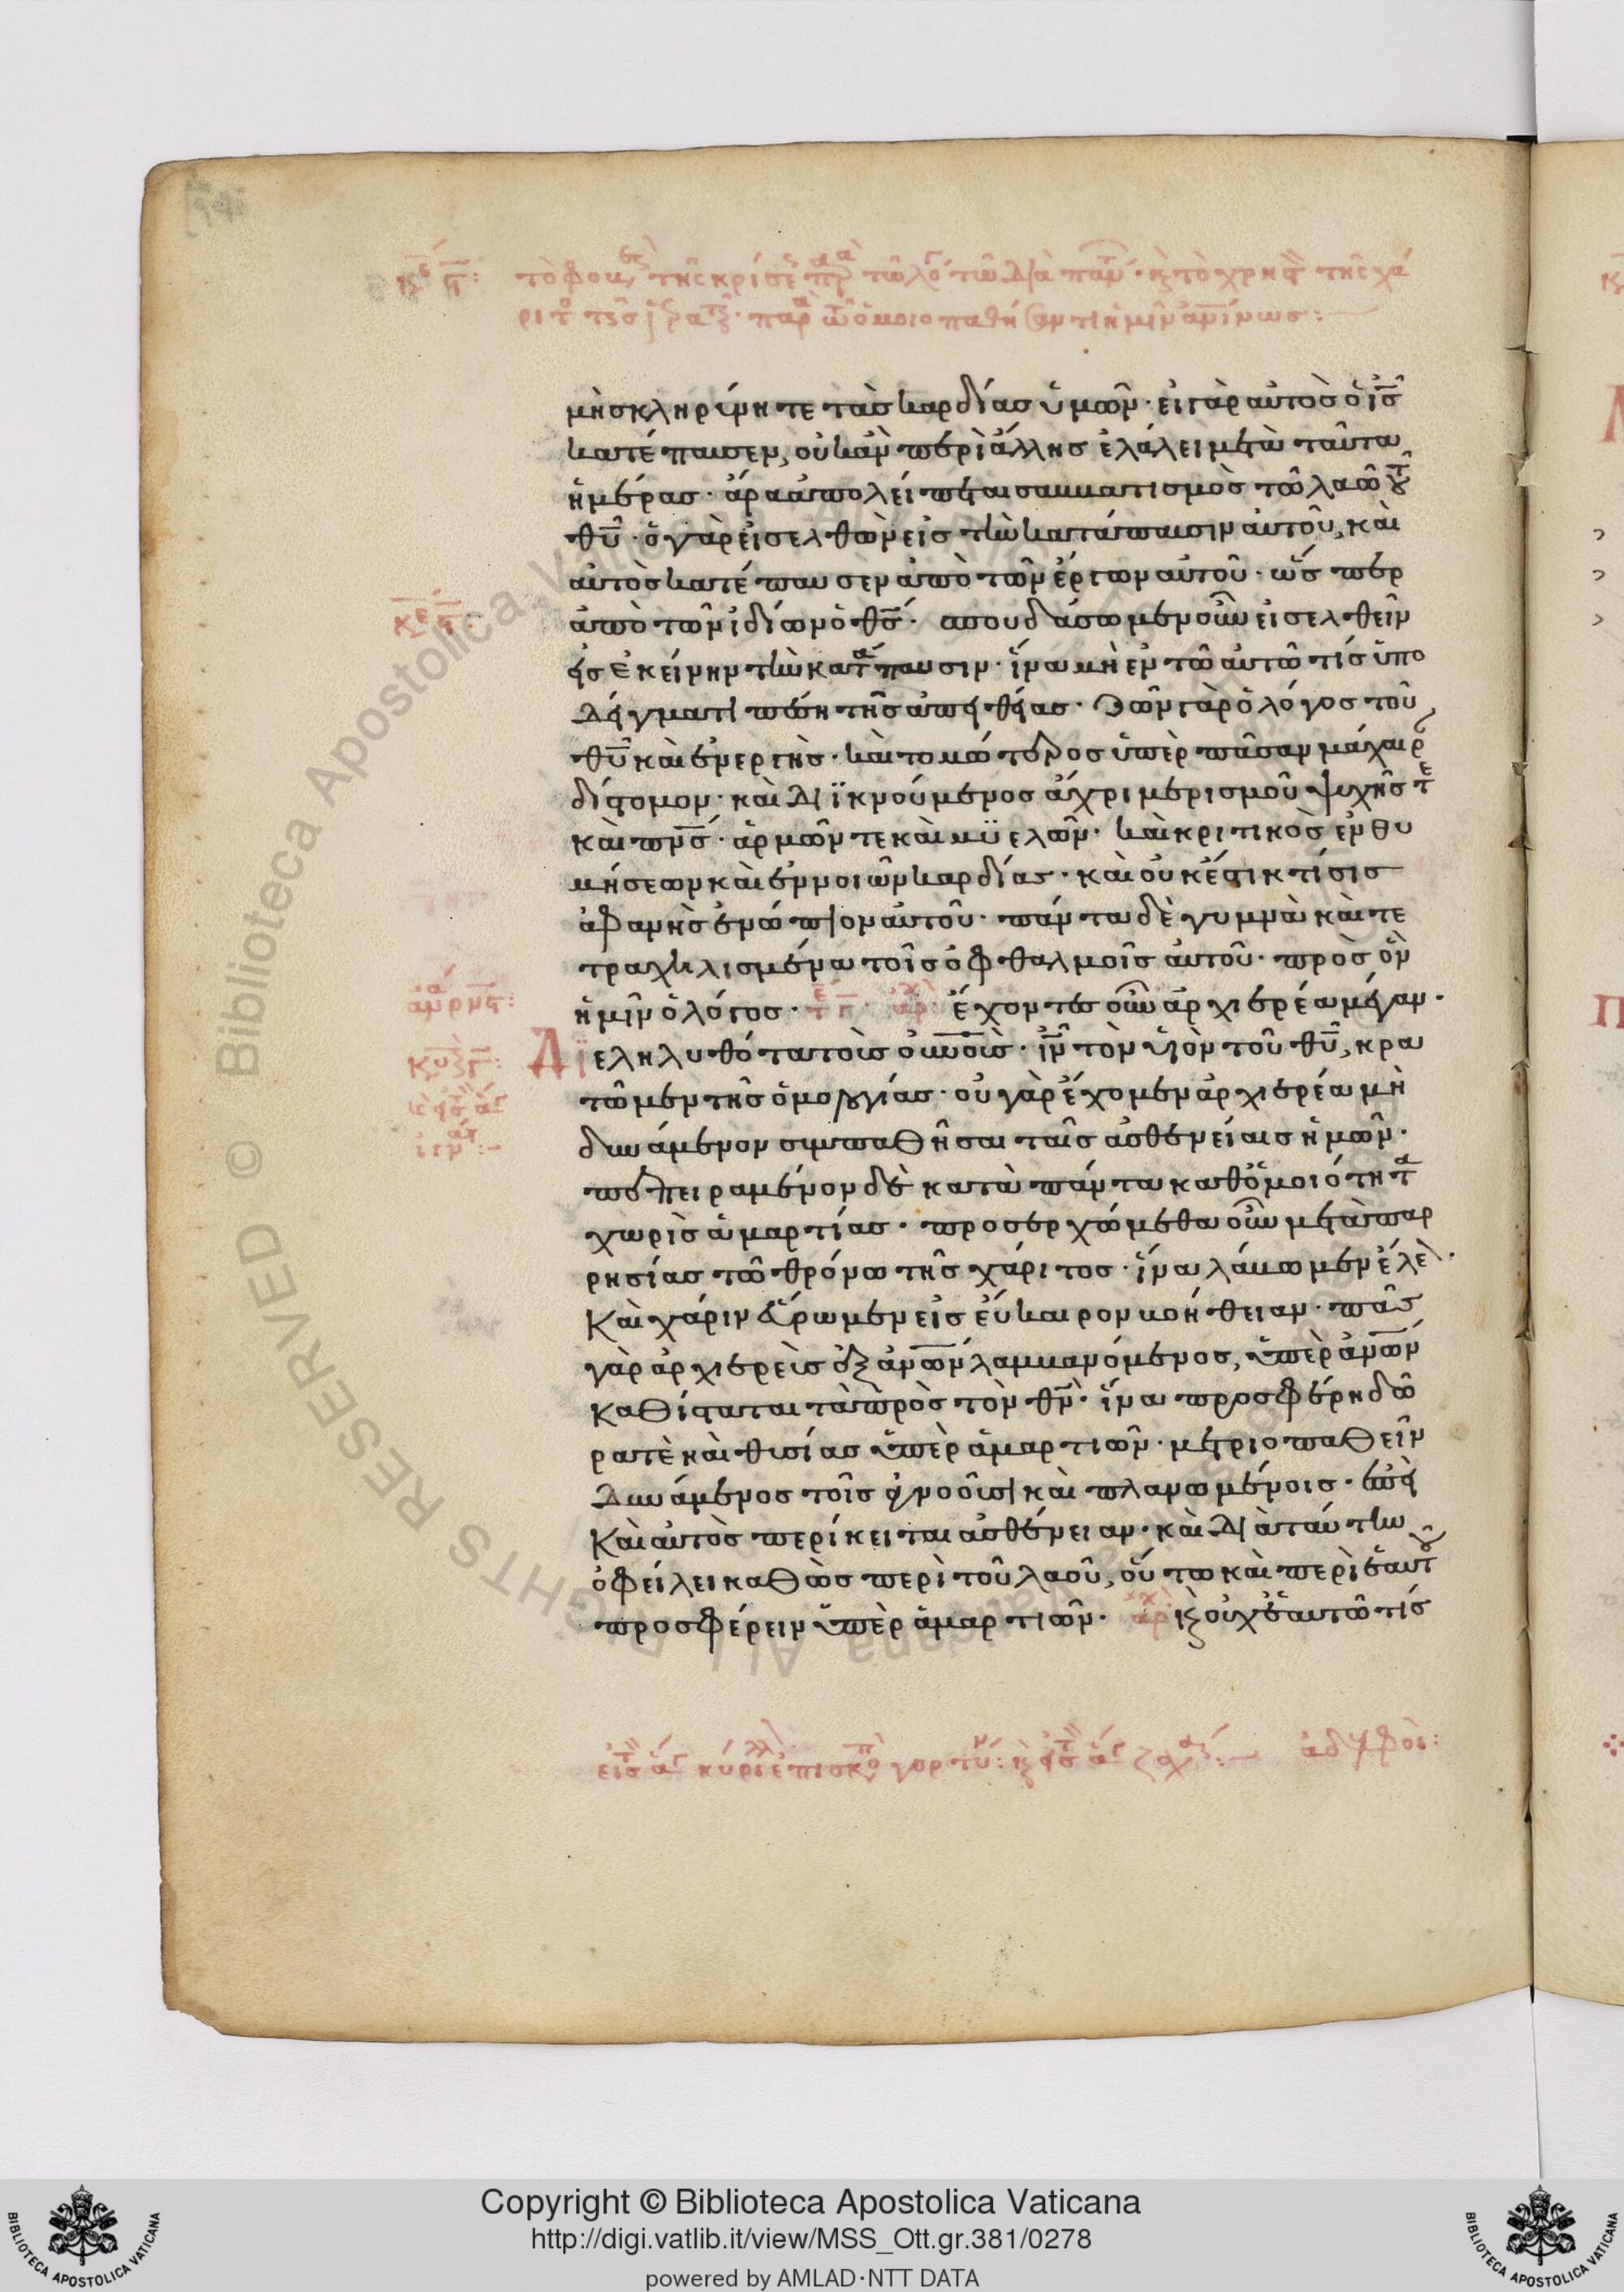 μὴ σκληρύνητε τὰς καρδίας ὑμῶν· εἰ γὰρ αὐτὸς ὁ ἰς
κατέπαυσεν, οὐκ ἂν περὶ ἄλλης ἐλάλει μετὰ ταῦτα
ἡμέρας· ἄρα ἀπολείπεται σαββατισμὸς τῶ λαῶ τοῦ
θυ· ὁ γὰρ εἰσελθὼν εἰς τὴν κατάπαυσιν αὐτοῦ, καὶ
αὐτὸς κατέπαυσεν ἀπὸ τῶν ἔργων αὐτοῦ· ὥσπερ
ἀπὸ τῶν ἰδίων ὁ θς· σπουδάσωμεν οὖν εἰσελθεῖν
εἰς ἐκείνην τὴν κατάπαυσιν· ἵνα μὴ ἐν τῶ αὐτῶ τίς ὑπο
δείγματι πέση τῆς ἀπειθείας· Ζῶν γὰρ ὁ λόγος τοῦ
θυ καὶ ἐνεργὴς· καὶ τομώτερος ὑπὲρ πᾶσαν μάχαιρ
δίστομον· καὶ διϊκνούμενος ἄχρι μερισμοῦ ψυχῆς τε
καὶ πνς· ἁρμῶν τε καὶ μϋελῶν· καὶ κριτικὸς ἐνθυ
μήσεων καὶ ἐννοιῶν καρδίας· καὶ οὐκ ἔστι κτίσις
ἀφανὴς ἐνώπιον αὐτοῦ· πάντα δὲ γυμνὰ καὶ τε
τραχηλισμένα τοῖς ὀφθαλμοῖς αὐτοῦ· πρὸς ὃν
ἡμῖν ὁ λόγος· ἔχοντες οὖν ἀρχιερέα μέγαν·
Διεληλυθότα τοὺς οὐνοὺς· ἰν τὸν υἱὸν τοῦ θυ, κρα
τῶμεν τῆς ὁμολογίας· οὐ γὰρ ἔχομεν ἀρχιερέα μὴ
δυνάμενον συμπαθῆσαι ταῖς ἀσθενείαις ἡμῶν·
πεπειραμένον δὲ κατὰ πάντα καθ' ὁμοιότητα
χωρὶς ἁμαρτίας· προσερχώμεθα οὖν μετὰ παρ
ρησίας τῶ θρόνω τῆς χάριτος· ἵνα λάβωμεν ἔλε·
Καὶ χάριν εὕρωμεν εἰς εὔκαιρον βοήθειαν· πᾶς
γὰρ ἀρχιερεὺς ἐξ ἀνων λαμβανόμενος, ὑπὲρ ἀνων
καθίσταται τὰ πρὸς τὸν θν· ἵνα προσφέρη δῶ
ρά τε καὶ θυσίας ὑπὲρ ἁμαρτιῶν· μετριοπαθεῖν
δυνάμενος τοῖς ἀγνοοῦσι καὶ πλανωμένοις· ἐπεὶ
Καὶ αὐτὸς περίκειται ἀσθένειαν· καὶ διὰ ταύτην
ὀφείλει καθὼς περὶ τοῦ λαοῦ, οὕτω καὶ περὶ ἑαυτοῦ
προσφέρειν ὑπὲρ ἁμαρτιῶν· ἀρχ καὶ οὐχ ἑαυτῶ τίς
ἀδελφοὶ:
Copyright © Biblioteca Apostolica Vaticana
http://digi.vatlib.it/view/MSS_Ott.gr.381/0278
powered by AMLAD·NTT DATA